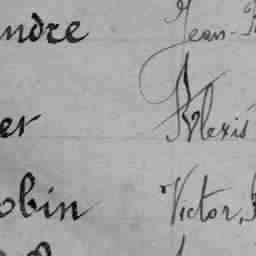 ndre Jean-
er Alexis
obin Victor,